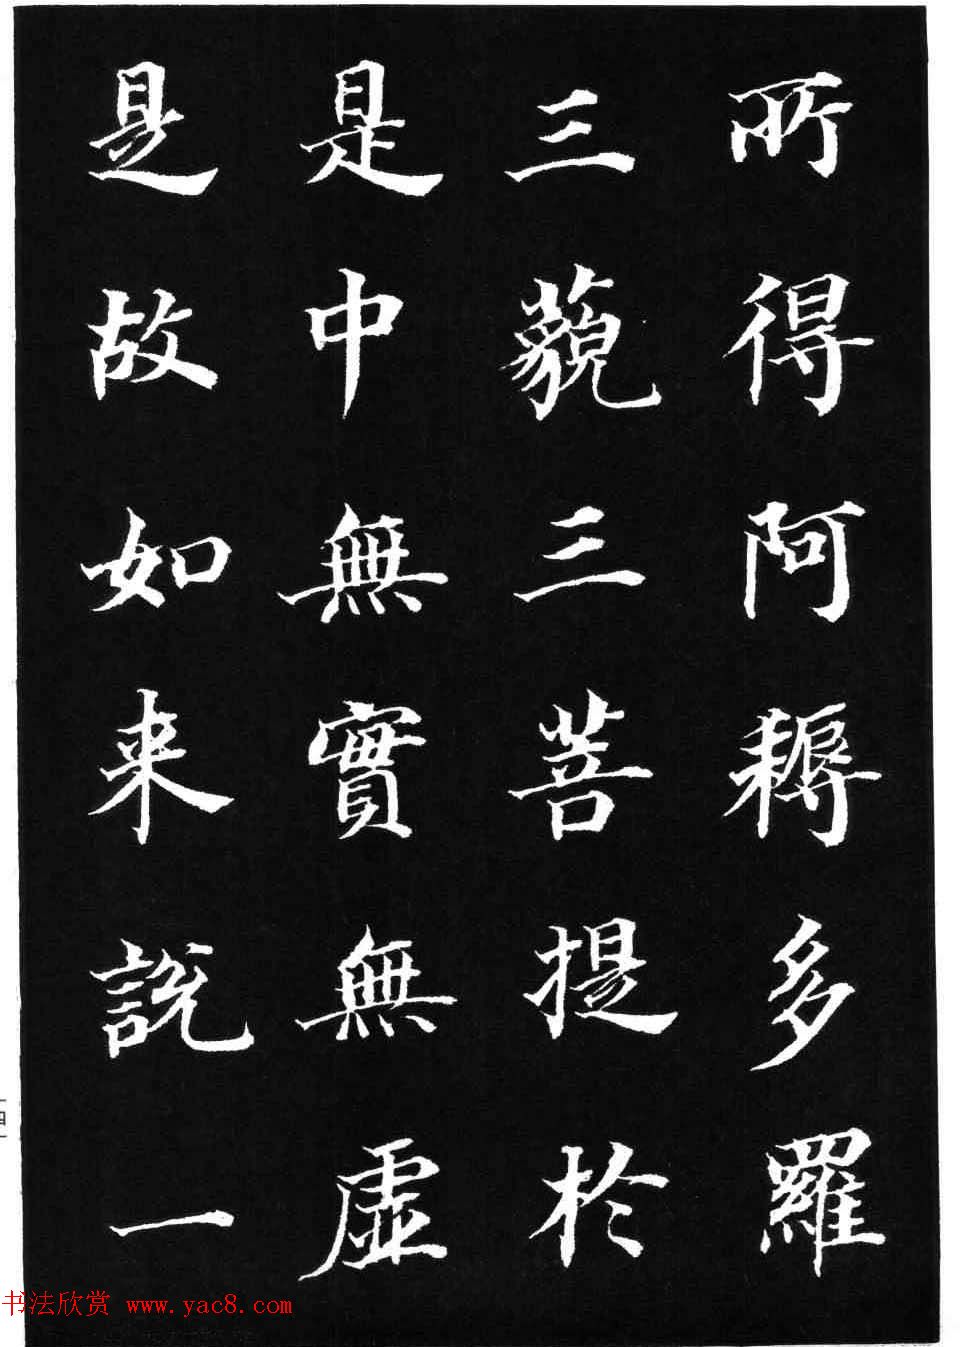 所得阿耨多羅
三藐三菩提於
是中無實無虛
是故如来說一
四
书法欣赏 www.yac8.com